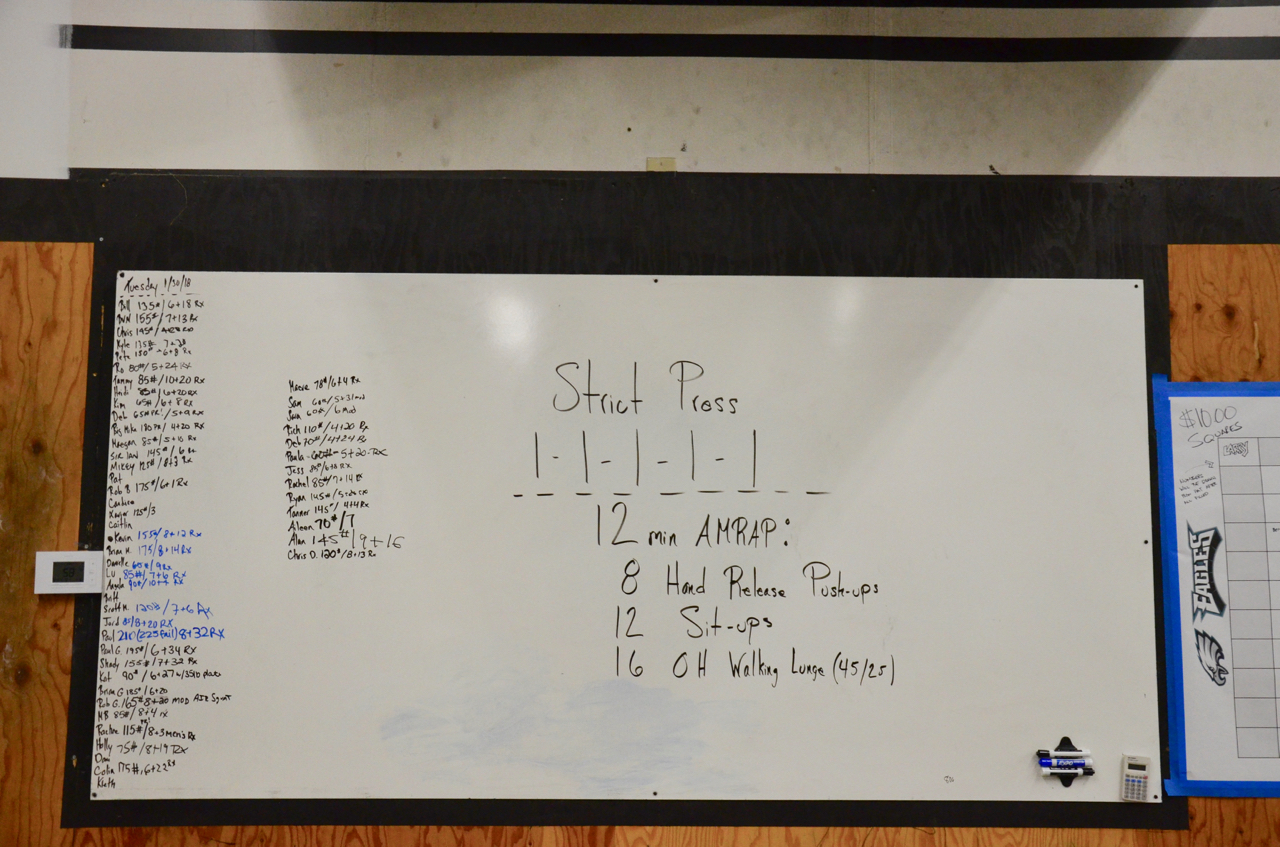 Tuesday 1/30/18
Bill 135#/6+18 Rx
155#/7+13 Rx
Chris 195#/
Kyle 7+28
Pete 150# 6+8 Rx
Ro 80#/5+24 Rx
Tammy 85#/10+20 Rx
Heidi 85#/6+20 Rx
Kim 65#/6+8 Rx
Deb 65# PR!/5+9 Rx
Big Mike 180 PR/4+20 Rx
Maegan 85#/5+10 Rx
Sir Ian 145#/6 Rx
Mikey 125#/8+3 Rx
Pat
Rob B 175#/6+1 Rx
125#/3
Caitlin
Kevin 155#/8+12 Rx
Brian M. 175/8+14 Rx
Danielle 60#/9 Rx
Lu 85#/7+6 Rx
Angela 90#/10+4 Rx
Britt
Scott M. 120#/7+6 Rx
Jord 85/8+20 Rx
Paul 210(225 fail) 8+32 Rx
Paul G. 195#/6+34 Rx
Shady 155#/7+32 Rx
Kat 90#/6+27 w/35lb plate
Brian G 185#/6+20
Rob G. 165# 8+20 MOD
MB 85#/8+4 rx
PR!
Rachne 115#/8+3 men's Rx
Holly 75#/8+19 Rx
Dani
Colin 175#, 6+22 Rx
Keith
Maeve 78#/6+4 Rx
Sam 60#/5+31 mod
Sam 60#/6 Mod
Rich 110#/4+20 Rx
Deb 70#/4+24 Rx
Paula - 60# - 5+20-Rx
Jess 85#/6+8 Rx
Rachel 85#/7+14 Rx
Ryan 145#/5+26 Rx
Tanner 145#/4+4 Rx
Aileen 70#/7
Alan 145#/9+16
Chris D. 120#/8+13 Rx
Strict Press
1-1-1-1-1
12 min AMRAP:
8 Hand Release Push-ups
12 Sit-ups
16 OH Walking Lunge (45/25)
EXPO
$1000
SQUARES
LARRY
NUMBERS
WILL BE DRAWN
EAGLES